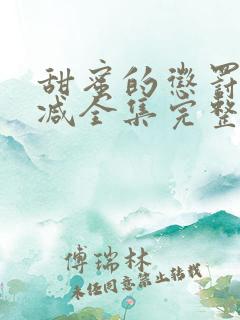 甜蜜的惩罚
减全集完整
傅瑞林
未经同意禁止转载